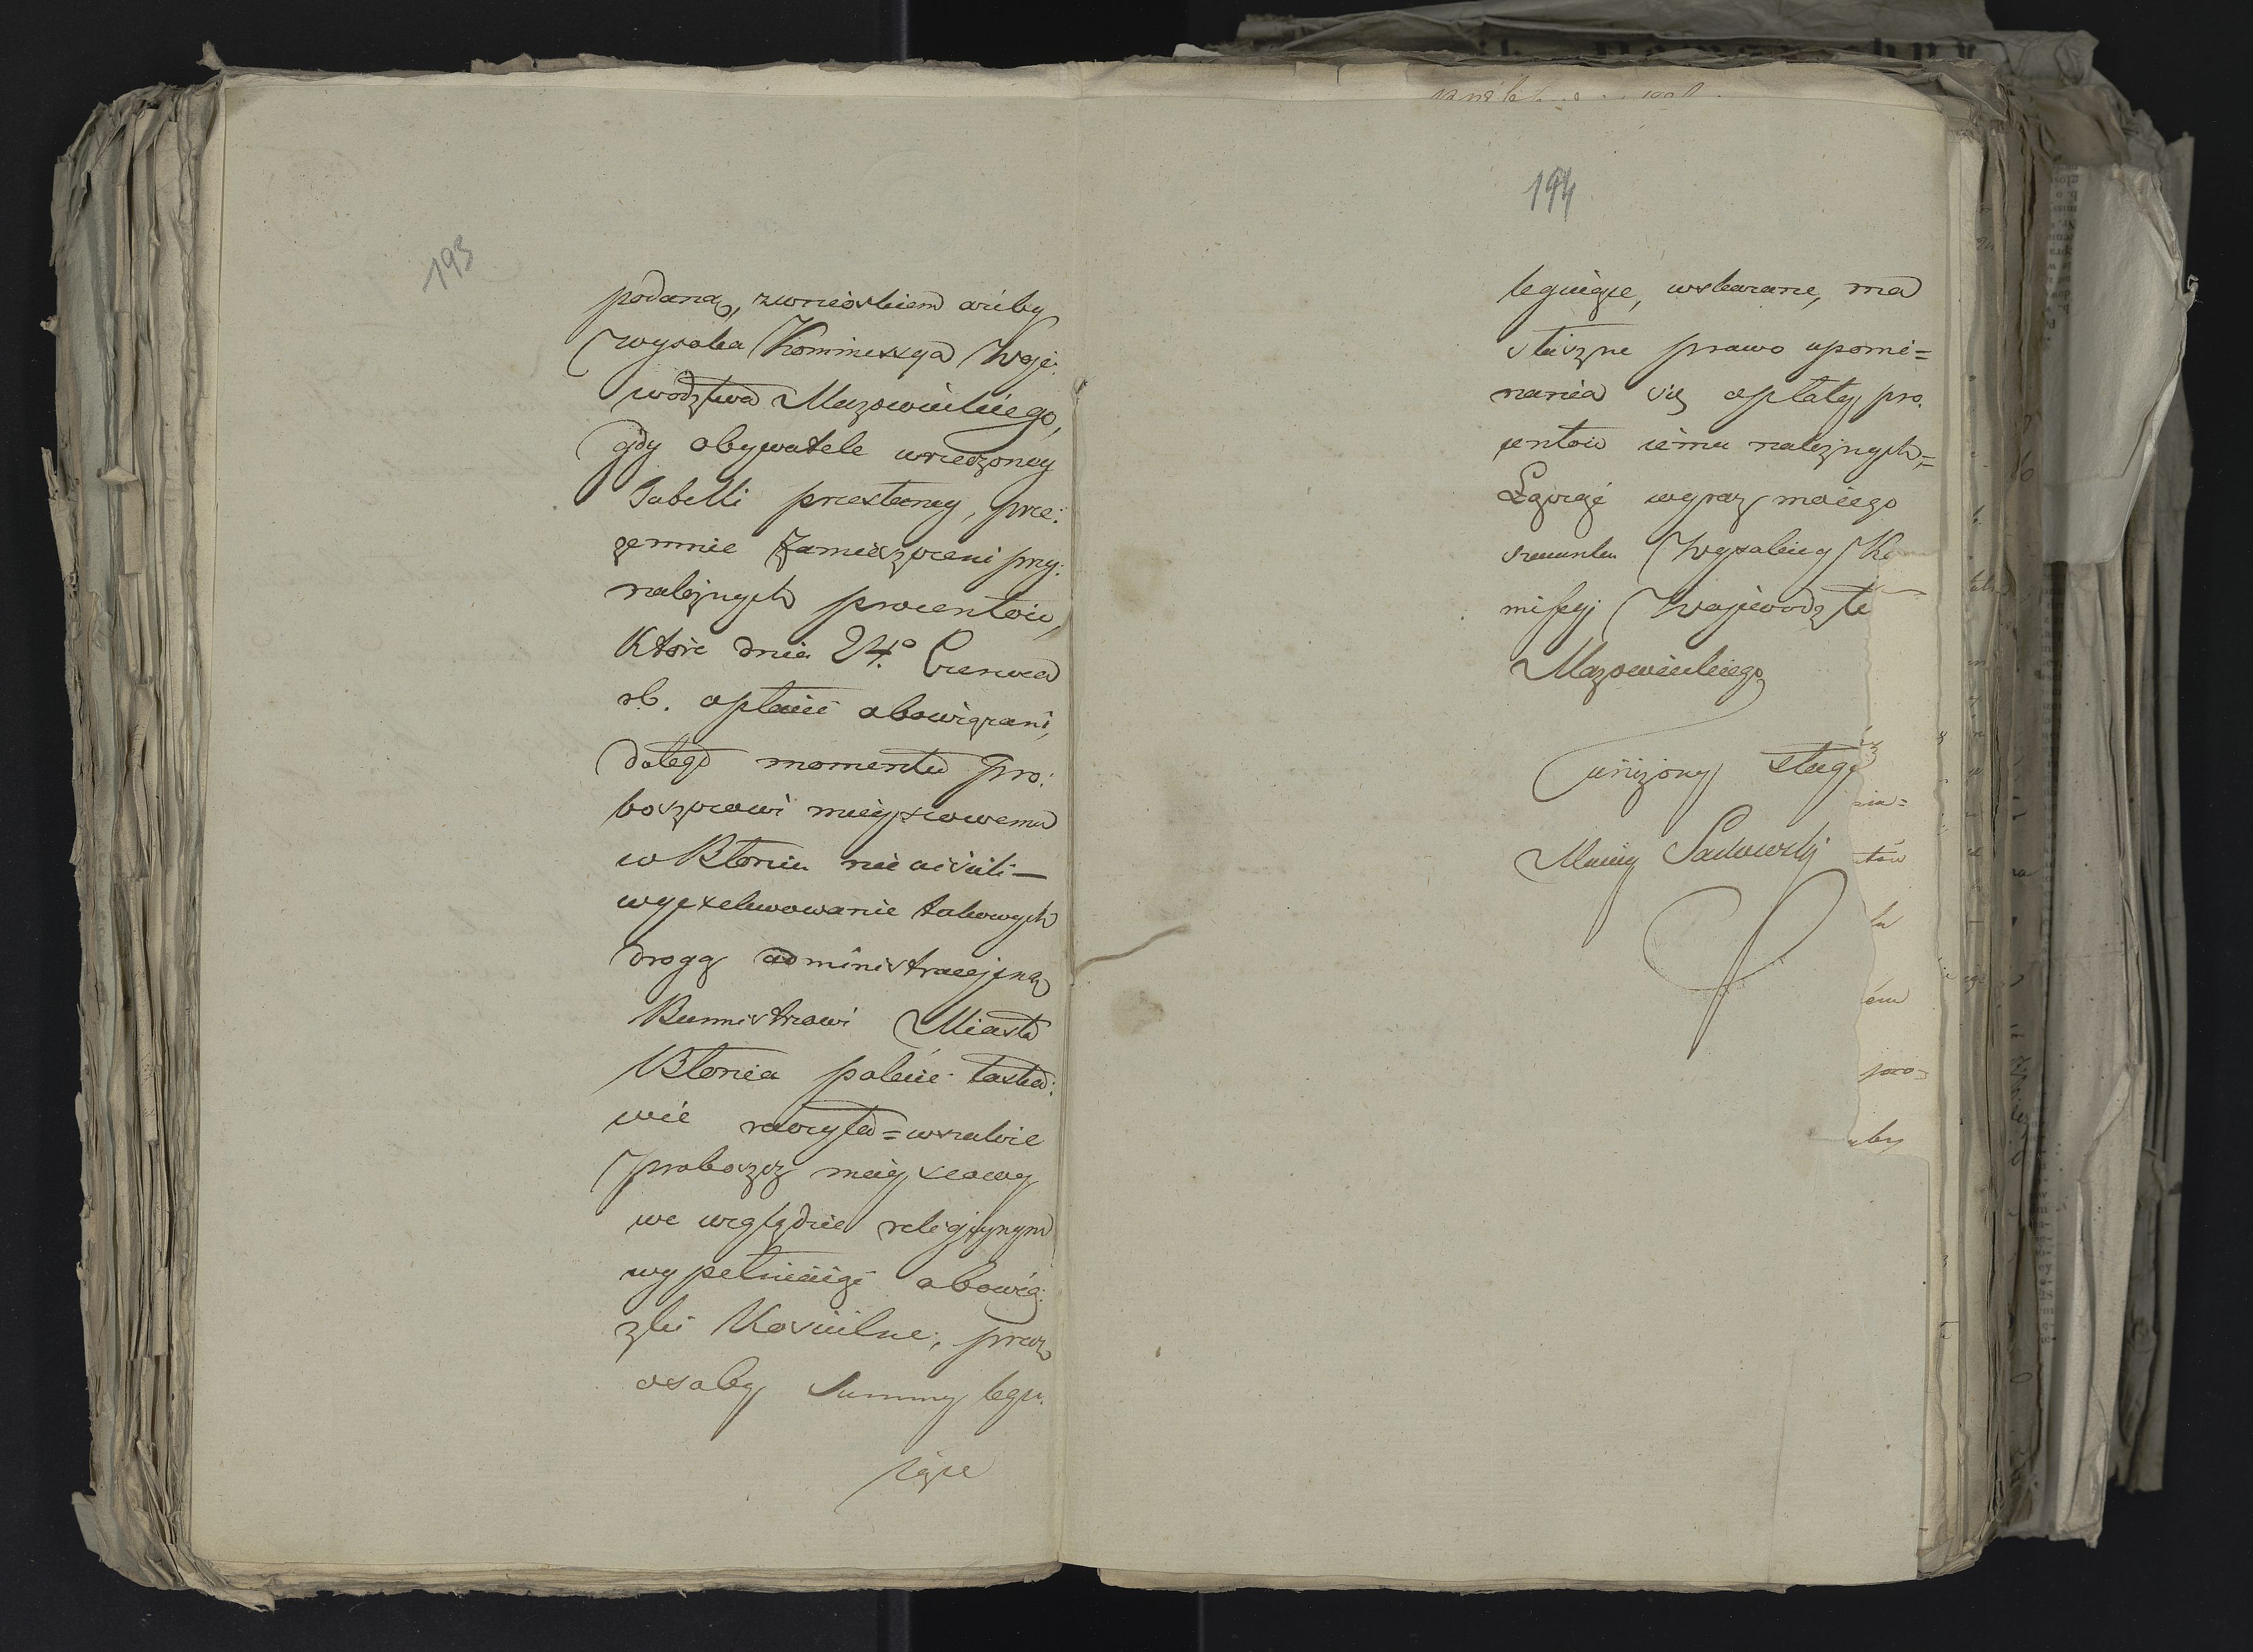 193
podaną, zwnioskiem aiżby
Wysoka Kommissya Woje:
wodztwa Mazowieckiego,
gdy obywatele wrzeczoney
Tabelli przesłaney, prze:
zemnie zamieszczeni przy:
należnych procentow,
które dnia 24º Czerwca
rb. opłacić obowiązani,
dotego momentu Pro:
boszczowi mieyscowemu
w Błoniu nie uiścili —
wyexekwowanie takowych
drogą administracyjną
Burmistrzowi Miasta
Błonia polecić łaska:
wie raczyła = wszakże
Proboszcz mieyscowy
we względzie religijnym
wypełniaiąc obowią:
zki Kościelne, przez
osoby Summy legu:
iące
194
leguiące, wskazane, ma
słuszne prawo upomi=
nania się opłaty pro:
centow iemu należnych =
Łączę wyraz moiego
szacunku Wysokiey Ko
missyj Wojewodzt
Mazowieckiego
uniżony sługa
Maciey Sadowski